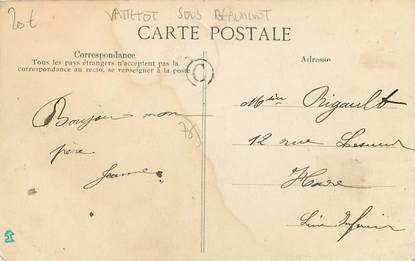 20€
VATTETOT SOUS BEAUMONT
CARTE POSTALE
Correspondance
Tous les pays étrangers n'acceptent pas la
correspondance au recto, se renseigner à la poste
Adresse
C
Bonjour mon
père
Jeanne
Rigault
12 rue Lesueur
Havre
Seine Inférieure